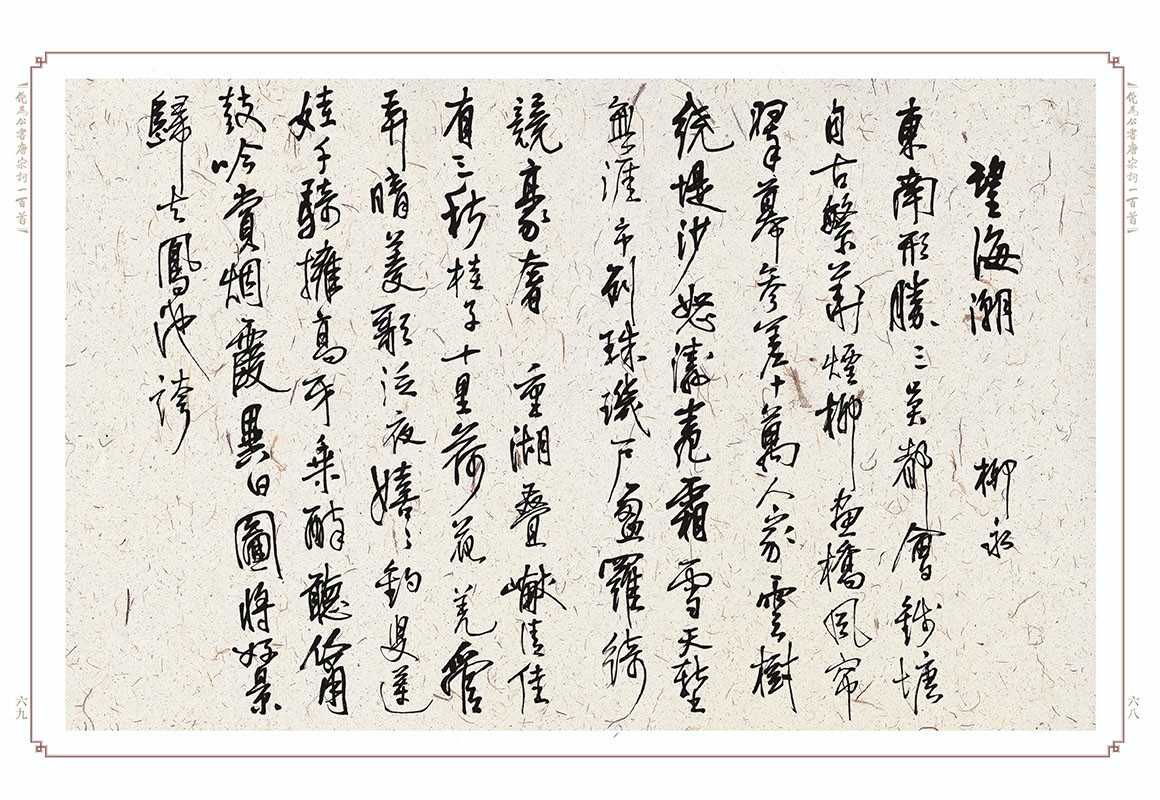 倪為公書唐宋詞一百首
六八
望海潮 柳永
東南形勝三吳都會錢塘
自古繁華煙柳畫橋風帘
翠幕參差十萬人家雲樹
繞堤沙怒濤卷霜雪天塹
無涯市列珠璣户盈羅綺
競豪奢 重湖疊巘清佳
有三秋桂子十里荷花羌管
弄晴菱歌泛夜嬉々釣叟蓮
娃千騎擁高牙乘醉聽簫
鼓吟賞烟霞異日圖將好景
歸去鳳池誇
倪為公書唐宋詞一百首
六九